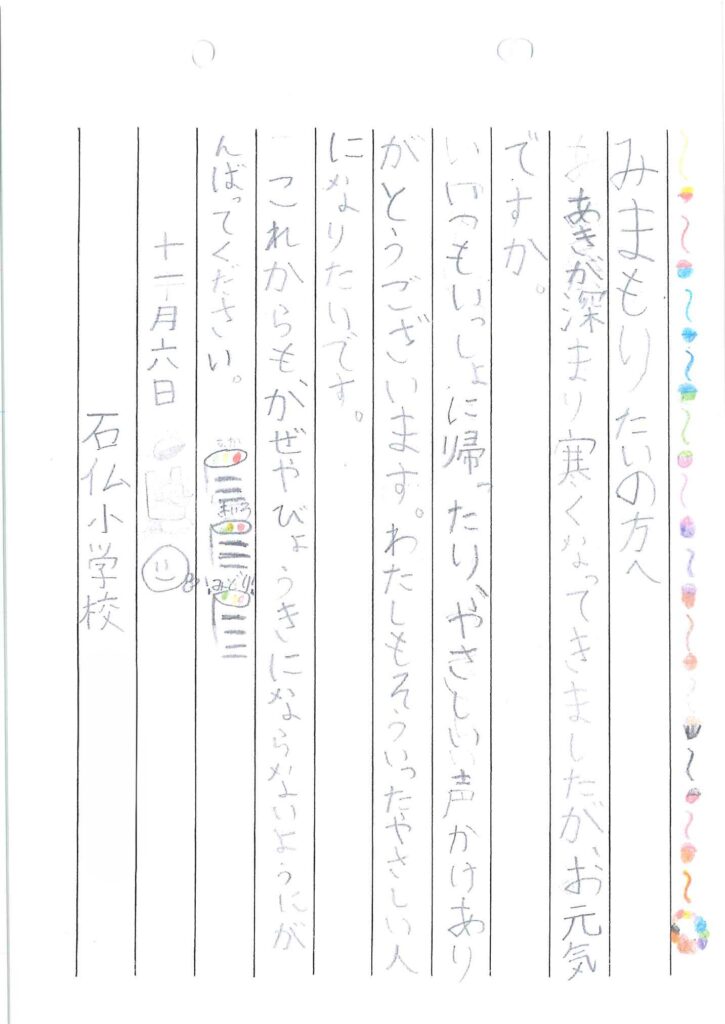 みまもりたいの方へ
あきが深まり寒くなってきましたが、お元気
ですか。
いつもいっしょに帰ったり、やさしい声かけあり
がとうございます。わたしもそういったやさしい人
になりたいです。
これからも、かぜやびょうきにならないようにが
んばってください。
あか
きいろ
みどり
十一月六日
石仏小学校